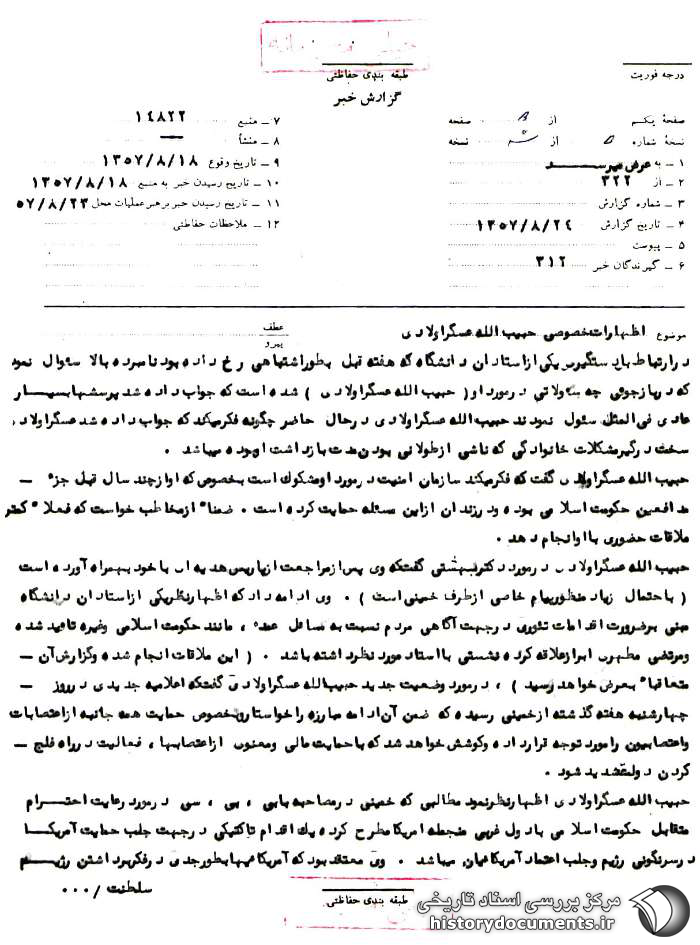 درجه فوریت
طبقه بندی حفاظتی
گزارش خبر
صفحهٔ یکم از ۸ صفحه
نسخهٔ شماره ۵ از نسخه
۱ ــ به عرض میرســـد
۲ ــ از ۳۲۲
۳ ــ شماره گزارش
۴ ــ تاریخ گزارش ۱۳۵۷/۸/۲۴
۵ ــ پیوست
۶ ــ گیرندگان خبر ۳۱۲
۷ ــ منبع ۱۴۸۲۲
۸ ــ منشأ —
۹ ــ تاریخ وقوع ۱۳۵۷/۸/۱۸
۱۰ ــ تاریخ رسیدن خبر به منبع ۱۳۵۷/۸/۱۸
۱۱ ــ تاریخ رسیدن خبر برهبر عملیات محل ۵۷/۸/۲۳
۱۲ ــ ملاحظات حفاظتی
موضوع اظهارات خصوصی حبیب الله عسگراولادی
عطف
پیرو
در ارتباط با دستگیری یکی از استادان دانشگاه که هفته قبل بطور اشتباهی رخ داده بود نامبرده بالا سئوال نمود
که در بازجوئی چه سئوالاتی در مورد او ( حبیب الله عسگراولادی ) شده است که جواب داده شد پرسشها بسیار
عادی فی المثل سئول نمودند حبیب الله عسگراولادی در حال حاضر چگونه فکر میکند که جواب داده شد عسگراولادی
سخت درگیر مشکلات خانوادگی که ناشی از طولانی بودن مدت بازداشت او بوده میباشد .
حبیب الله عسگراولادی گفت که فکر میکند سازمان امنیت در مورد او مشکوک است بخصوص که او از چند سال قبل جزء ــ
مدافعین حکومت اسلامی بوده و در زندان از این مسئله حمایت کرده است . ضمناً از مخاطب خواست که فعلاً کمتر
ملاقات حضوری با او انجام دهد .
حبیب الله عسگراولادی در مورد دکتر بهشتی گفت که وی پس از مراجعت از پاریس هدیه ای با خود بهمراه آورده است
( با احتمال زیاد منظور پیام خاصی از طرف خمینی است ) . وی ادامه داد که اظهار نظر یکی از استادان دانشگاه
مبنی بر ضرورت اقدامات تئوری در جهت آگاهی مردم نسبت به مسائل عمده ، مانند حکومت اسلامی و غیره تائید شده
و مرتضی مطهری ابراز علاقه کرده نشستی با استاد مورد نظر داشته باشد . ( این ملاقات انجام شده و گزارش آن ــ
متعاقباً بعرض خواهد رسید ) ، در مورد وضعیت جدید حبیب الله عسگراولادی گفت که اعلامیه جدیدی در روز ــ
چهارشنبه هفته گذشته از خمینی رسیده که ضمن آن ادامه مبارزه را خواستار و بخصوص حمایت همه جانبه از اعتصابات
و اعتصابیون را مورد توجه قرار داده و کوشش خواهد شد که با حمایت مالی و معنوی از اعتصابها ، فعالیت در راه فلج ــ
کردن دولت تشدید شود .
حبیب الله عسگراولادی اظهار نظر نمود مطالبی که خمینی در مصاحبه با بی ، بی ، سی در مورد رعایت احتـــرام
متقابل حکومت اسلامی با دول غربی منجمله امریکا مطرح کرده یک اقدام تاکتیکی در جهت جلب حمایت آمریکـــا
در سرنگونی رژیم و جلب اعتماد آمریکائیان میباشد . وی معتقد بود که آمریکائیها بطور جدی در فکر برداشتن رژیـــم
سلطنت /۰۰۰
طبقه بندی حفاظتی
مرکز بررسی اسناد تاریخی
historydocuments.ir